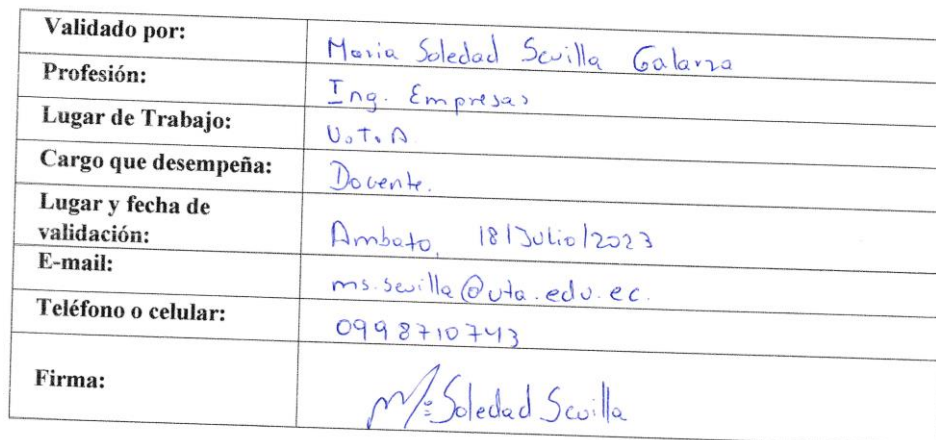 Validado por: Maria Soledad Sevilla Galarza
Profesión: Ing. Empresas
Lugar de Trabajo: U.T.A
Cargo que desempeña: Docente.
Lugar y fecha de
validación: Ambato, 18/Julio/2023
E-mail: ms.sevilla@uta.edu.ec.
Teléfono o celular: 0998710743
Firma: Mª Soledad Sevilla